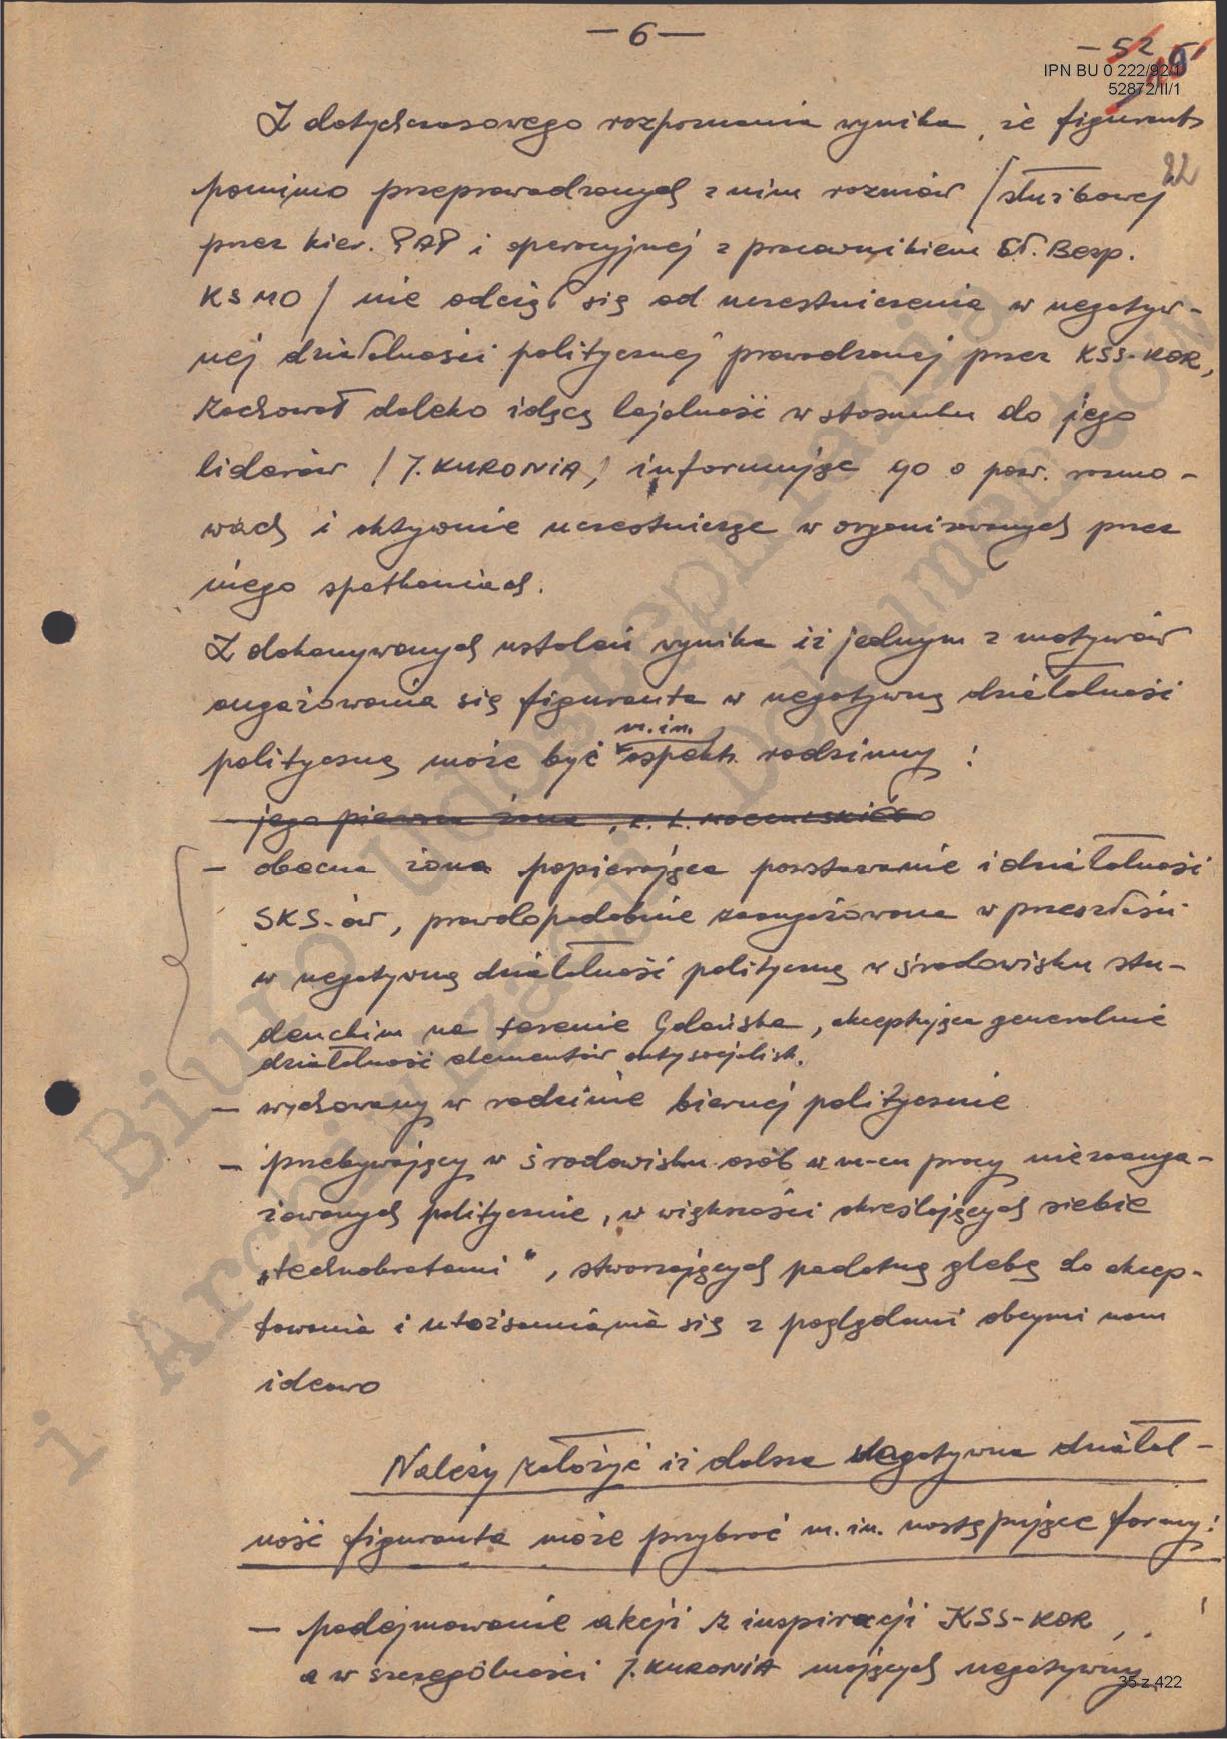 — 6 —
— 52
IPN BU 0 222/92/1
52872/II/1
Z dotychczasowego rozpoznania wynika, że figurant
22
pomimo przeprowadzonych z nim rozmów /służbowej
przez kier. PAP i operacyjnej z pracownikiem Sł. Bezp.
KSMO/ nie odciął się od uczestniczenia w negatyw-
nej działalności politycznej prowadzonej przez KSS-KOR,
zachował daleko idącą lojalność w stosunku do jego
liderów /J. KURONIA/ informując go o pow. rozmo-
wach i aktywnie uczestnicząc w organizowanych przez
niego spotkaniach.
Z dokonywanych ustaleń wynika iż jednym z motywów
angażowania się figuranta w negatywną działalność
polityczną może być m.in. aspekt rodzinny:
jego pierwsza żona,
— obecna żona popierająca powstawanie i działalność
SKS-ów, prawdopodobnie zaangażowana w przeszłości
w negatywną działalność polityczną w środowisku stu-
denckim na terenie Gdańska, akceptująca generalnie
działalność elementów antysocjalist.
— wychowany w rodzinie biernej politycznie
— przebywający w środowisku osób w m-cu pracy niezaanga-
żowanych politycznie, w większości określających siebie
„technokratami", stwarzających podatną glebę do akcep-
towania i utożsamiania się z poglądami obcymi nam
ideowo
Należy założyć iż dalsza negatywna działal-
ność figuranta może przybrać m.in. następujące formy:
— podejmowanie akcji z inspiracji KSS-KOR,
a w szczególności J. KURONIA mających negatywny
35 z 422
Biuro Udostępniania
i Archiwizacji Dokumentów